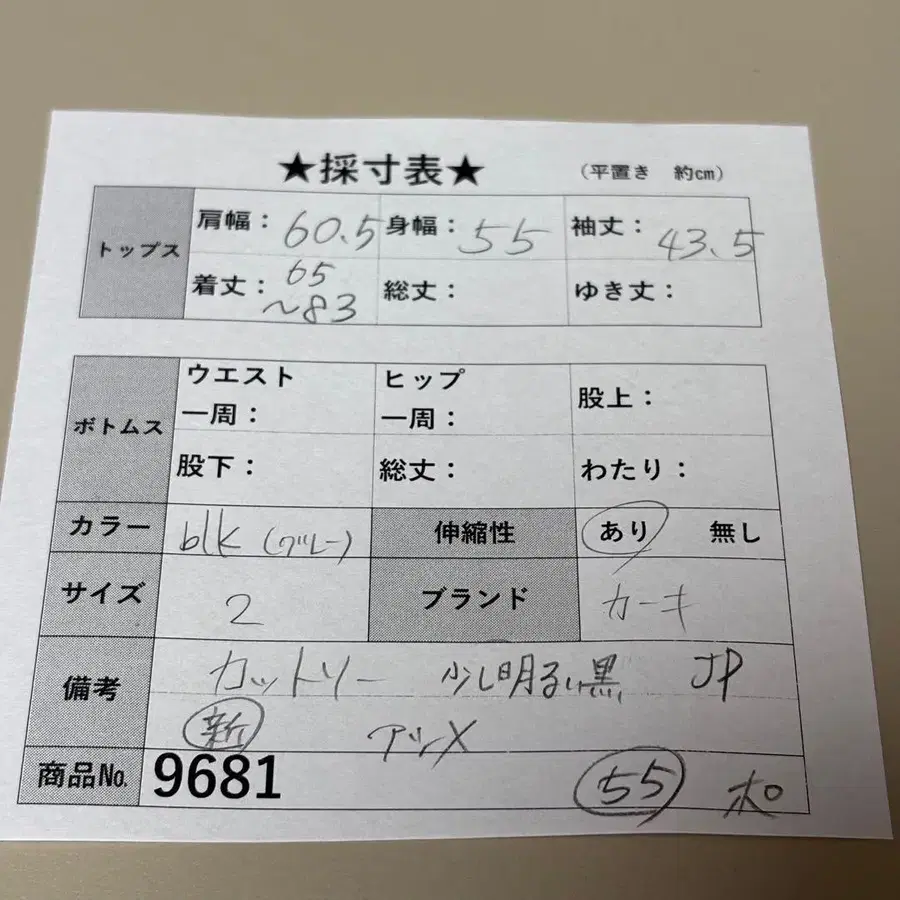 ★採寸表★ （平置き 約㎝）
トップス 肩幅： 60.5 身幅： 55 袖丈： 43.5
着丈： 65 ～83 総丈： ゆき丈：
ボトムス ウエスト一周： ヒップ一周： 股上：
股下： 総丈： わたり：
カラー blk (グレー) 伸縮性 あり 無し
サイズ 2 ブランド カーキ
備考 カットソー 少し明るい黒 JP
新
商品No. 9681 55